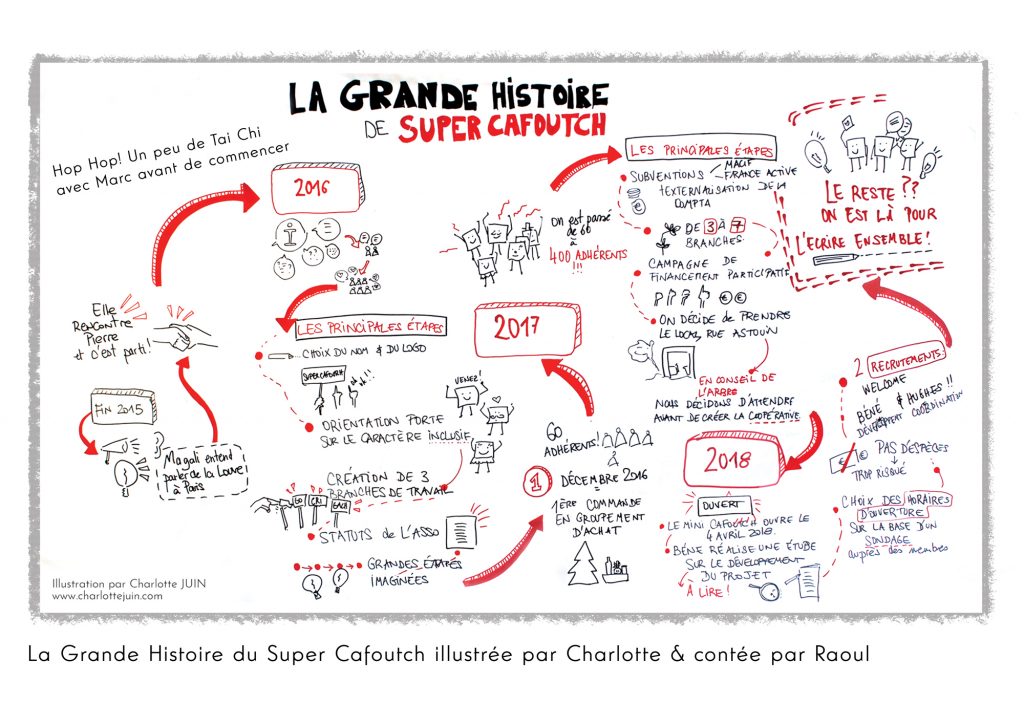 LA GRANDE HISTOIRE
DE SUPER CAFOUTCH
Hop Hop! Un peu de Tai Chi
avec Marc avant de commencer
FIN 2015
Magali entend
parler de la Louve
à Paris
Elle
RENCONTRE
Pierre
et c'est parti!
2016
LES PRINCIPALES ÉTAPES
CHOIX DU NOM & DU LOGO
SUPERCAFOUTCH
ORIENTATION FORTE
SUR LE CARACTÈRE INCLUSIF
VENEZ!
CRÉATION DE 3
BRANCHES DE TRAVAIL
STATUTS de L'ASSO
GRANDES ÉTAPES
IMAGINÉES
60
ADHÉRENTS!
1 DÉCEMBRE 2016
1ÈRE COMMANDE
EN GROUPEMENT
D'ACHAT
2017
on est passé
de 60
à
400 ADHÉRENTS
!!!
LES PRINCIPALES ÉTAPES
SUBVENTIONS MACIF
FRANCE ACTIVE
+EXTERNALISATION DE LA
COMPTA
DE 3 À 7
BRANCHES
CAMPAGNE DE
FINANCEMENT PARTICIPATIF
ON DÉCIDE DE PRENDRE
LE LOCAL RUE ASTOUIN
EN CONSEIL DE
L'ARBRE
NOUS DÉCIDONS D'ATTENDRE
AVANT DE CRÉER LA COOPÉRATIVE
2018
OUVERT
LE MINI CAFOUTCH OUVRE LE
4 AVRIL 2018.
BÉNÉ RÉALISE UNE ÉTUDE
SUR LE DÉVELOPPEMENT
DU PROJET
À LIRE!
2 RECRUTEMENTS
WELCOME
BÉNÉ & HUGHES!!
DÉVELOPPEMENT COORDINATION
PAS D'ESPÈCES
TROP RISQUÉ
CHOIX DES HORAIRES
D'OUVERTURE
SUR LA BASE D'UN
SONDAGE
auprès des membres
LE RESTE??
ON EST LÀ POUR
L'ECRIRE ENSEMBLE!
Illustration par Charlotte JUIN
www.charlottejuin.com
La Grande Histoire du Super Cafoutch illustrée par Charlotte & contée par Raoul